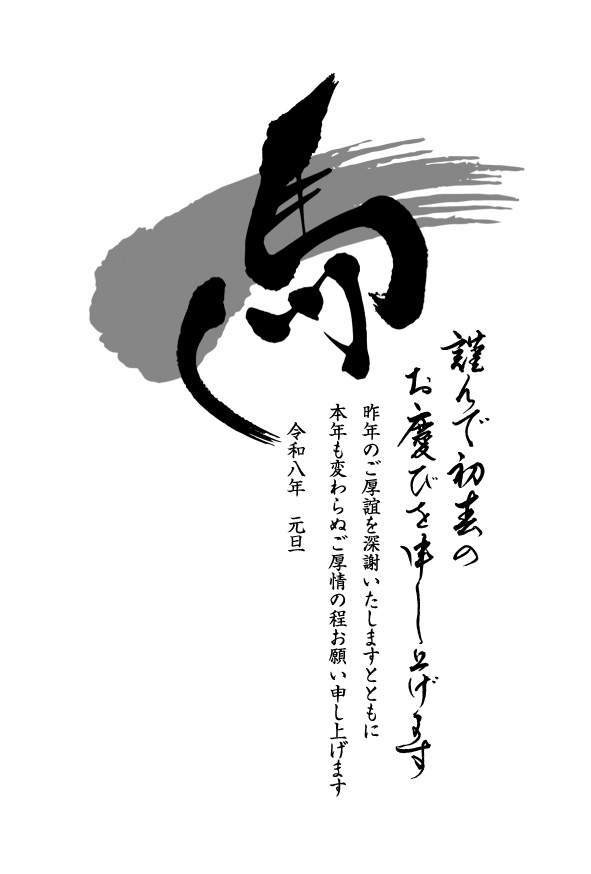 馬
謹んで初春の
お慶びを申し上げます
昨年のご厚誼を深謝いたしますとともに
本年も変わらぬご厚情の程お願い申し上げます
令和八年　元旦